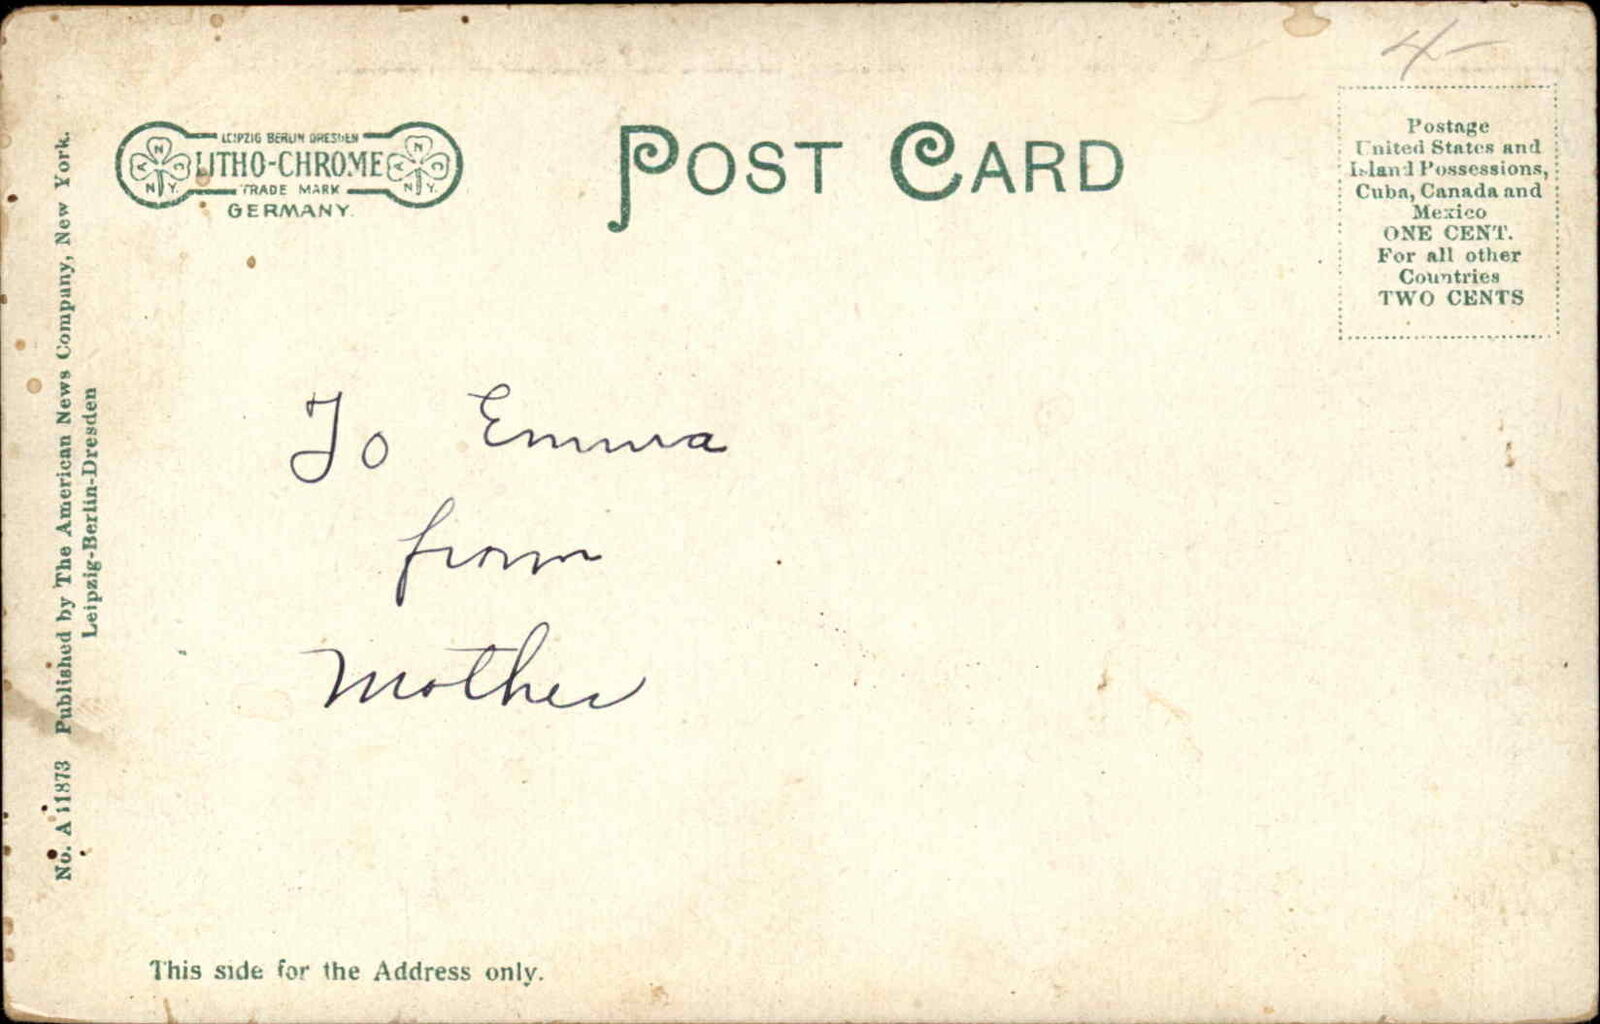 LEIPZIG BERLIN DRESDEN
LITHO-CHROME
TRADE MARK
GERMANY.
POST CARD
4-
Postage
United States and
Island Possessions,
Cuba, Canada and
Mexico
ONE CENT.
For all other
Countries
TWO CENTS
To Emma
from
Mother
No. A 11873 Published by The American News Company, New York.
Leipzig-Berlin-Dresden
This side for the Address only.